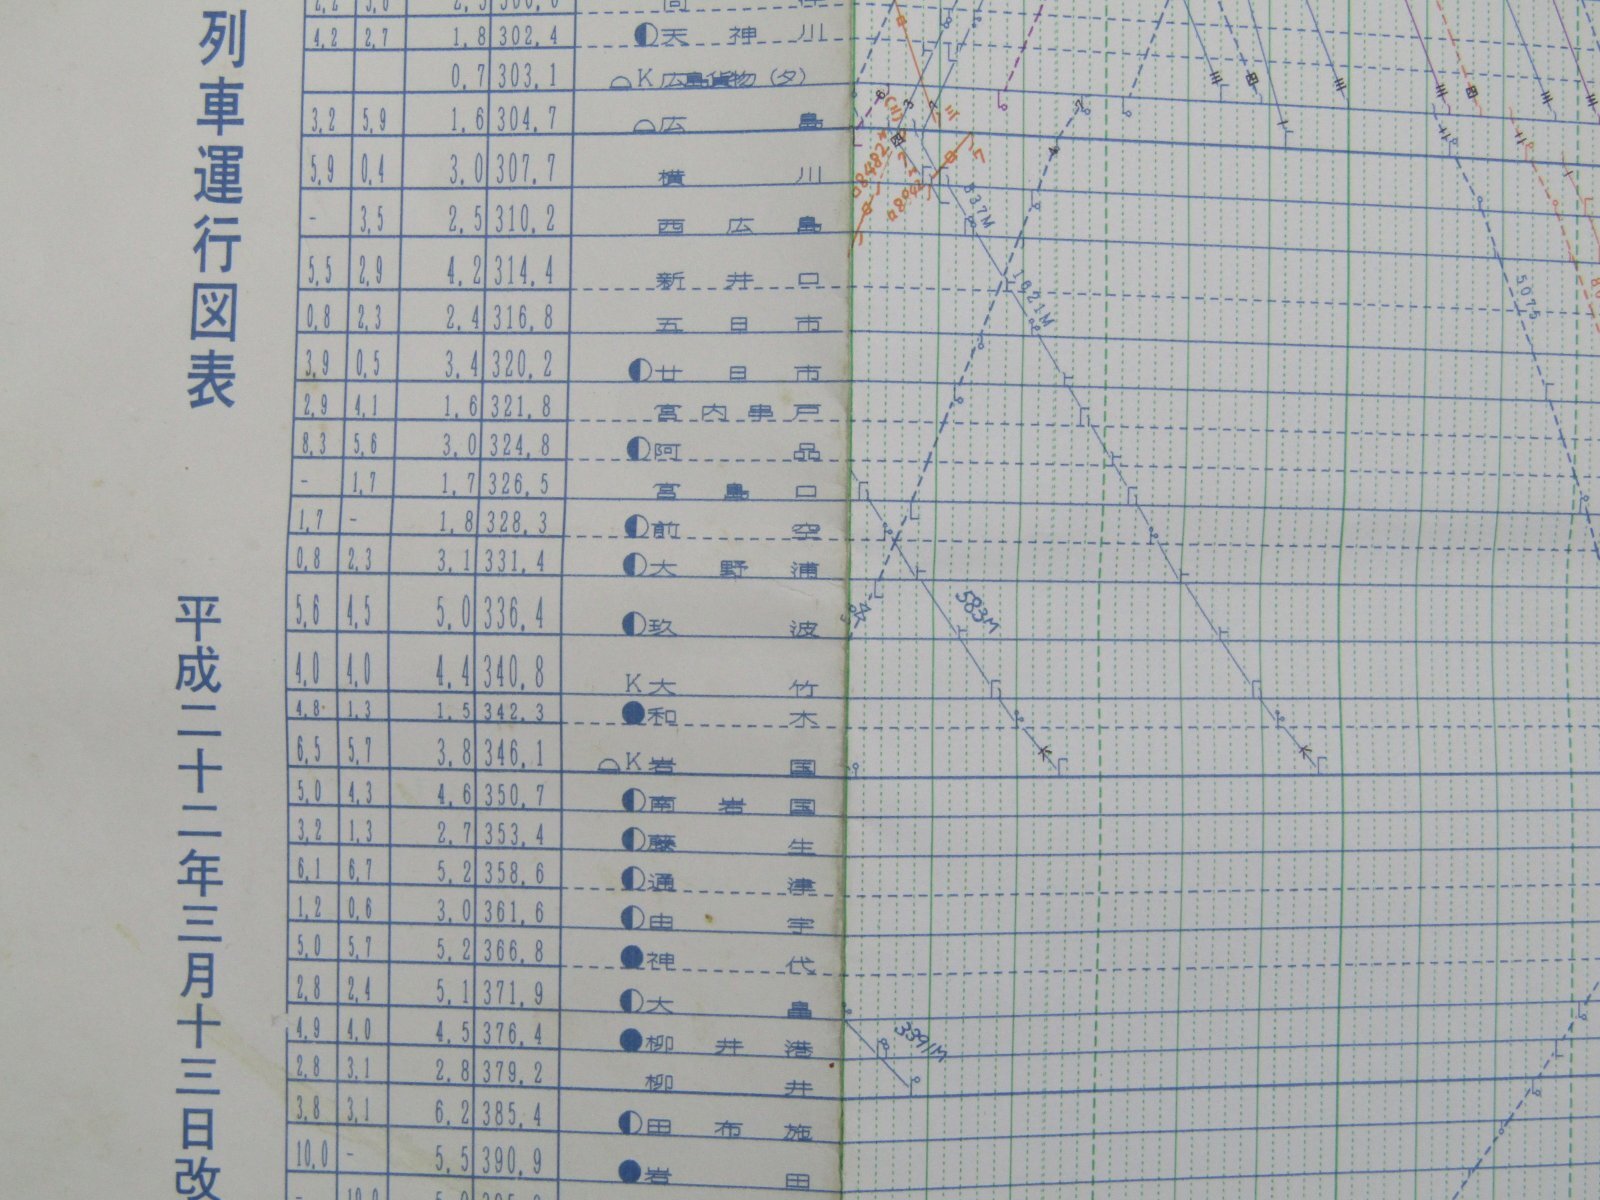 列車運行図表
平成二十二年三月十三日改
4,2 2,7 1,8 302,4 天神川
0,7 303,1 K広島貨物(タ)
3,2 5,9 1,6 304,7 広島
5,9 0,4 3,0 307,7 横川
- 3,5 2,5 310,2 西広島
5,5 2,9 4,2 314,4 新井口
0,8 2,3 2,4 316,8 五日市
3,9 0,5 3,4 320,2 廿日市
2,9 4,1 1,6 321,8 宮内串戸
8,3 5,6 3,0 324,8 阿品
- 1,7 1,7 326,5 宮島口
1,7 - 1,8 328,3 前空
0,8 2,3 3,1 331,4 大野浦
5,6 4,5 5,0 336,4 玖波
4,0 4,0 4,4 340,8 K大竹
4,8 1,3 1,5 342,3 和木
6,5 5,7 3,8 346,1 K岩国
5,0 4,3 4,6 350,7 南岩国
3,2 1,3 2,7 353,4 藤生
6,1 6,7 5,2 358,6 通津
1,2 0,6 3,0 361,6 由宇
5,0 5,7 5,2 366,8 神代
2,8 2,4 5,1 371,9 大畠
4,9 4,0 4,5 376,4 柳井港
2,8 3,1 2,8 379,2 柳井
3,8 3,1 6,2 385,4 田布施
10,0 - 5,5 390,9 岩田
537M
1021M
5075
583M
3391M